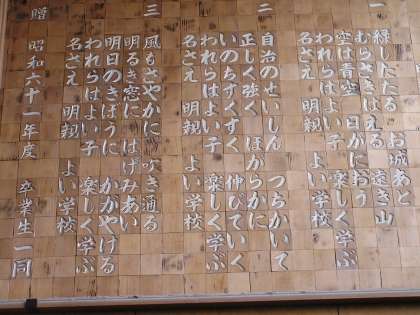 一
緑したたる お城あと
むらさきはえる 遠き山
空は青空 日がにおう
われらはよい子 楽しく学ぶ
名さえ 明親 よい学校
二
自治のせいしん つちかいて
正しく強く ほがらかに
いのちすくすく 伸びていく
われらはよい子 楽しく学ぶ
名さえ 明親 よい学校
三
風もさやかに 吹き通る
明るき窓に はげみあい
明日のきぼうに かがやける
われらはよい子 楽しく学ぶ
名さえ 明親 よい学校
贈 昭和六十一年度 卒業生一同